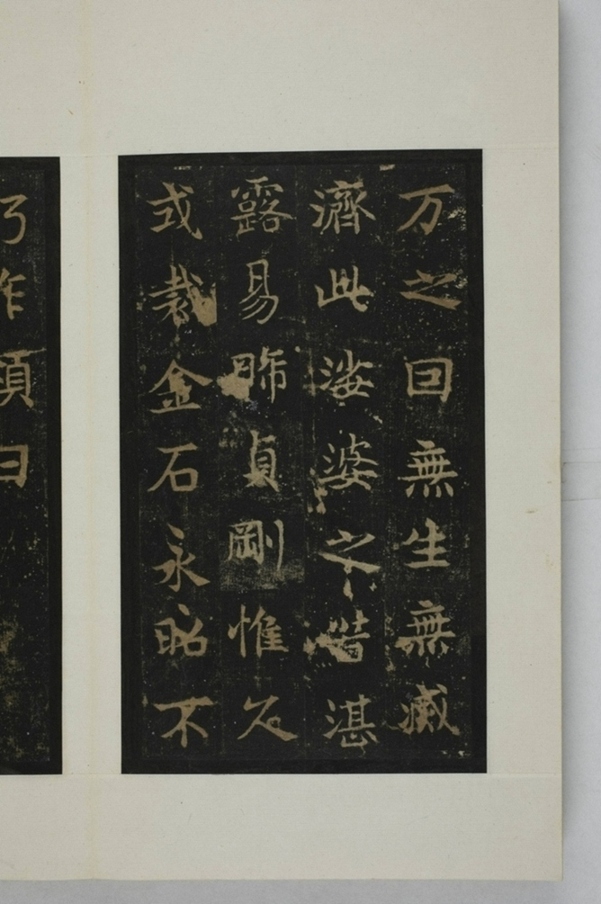 万之囙無生無滅
濟此娑婆之湛
露易晞貞剛惟久
式裁金石永昭不
乃作頌曰